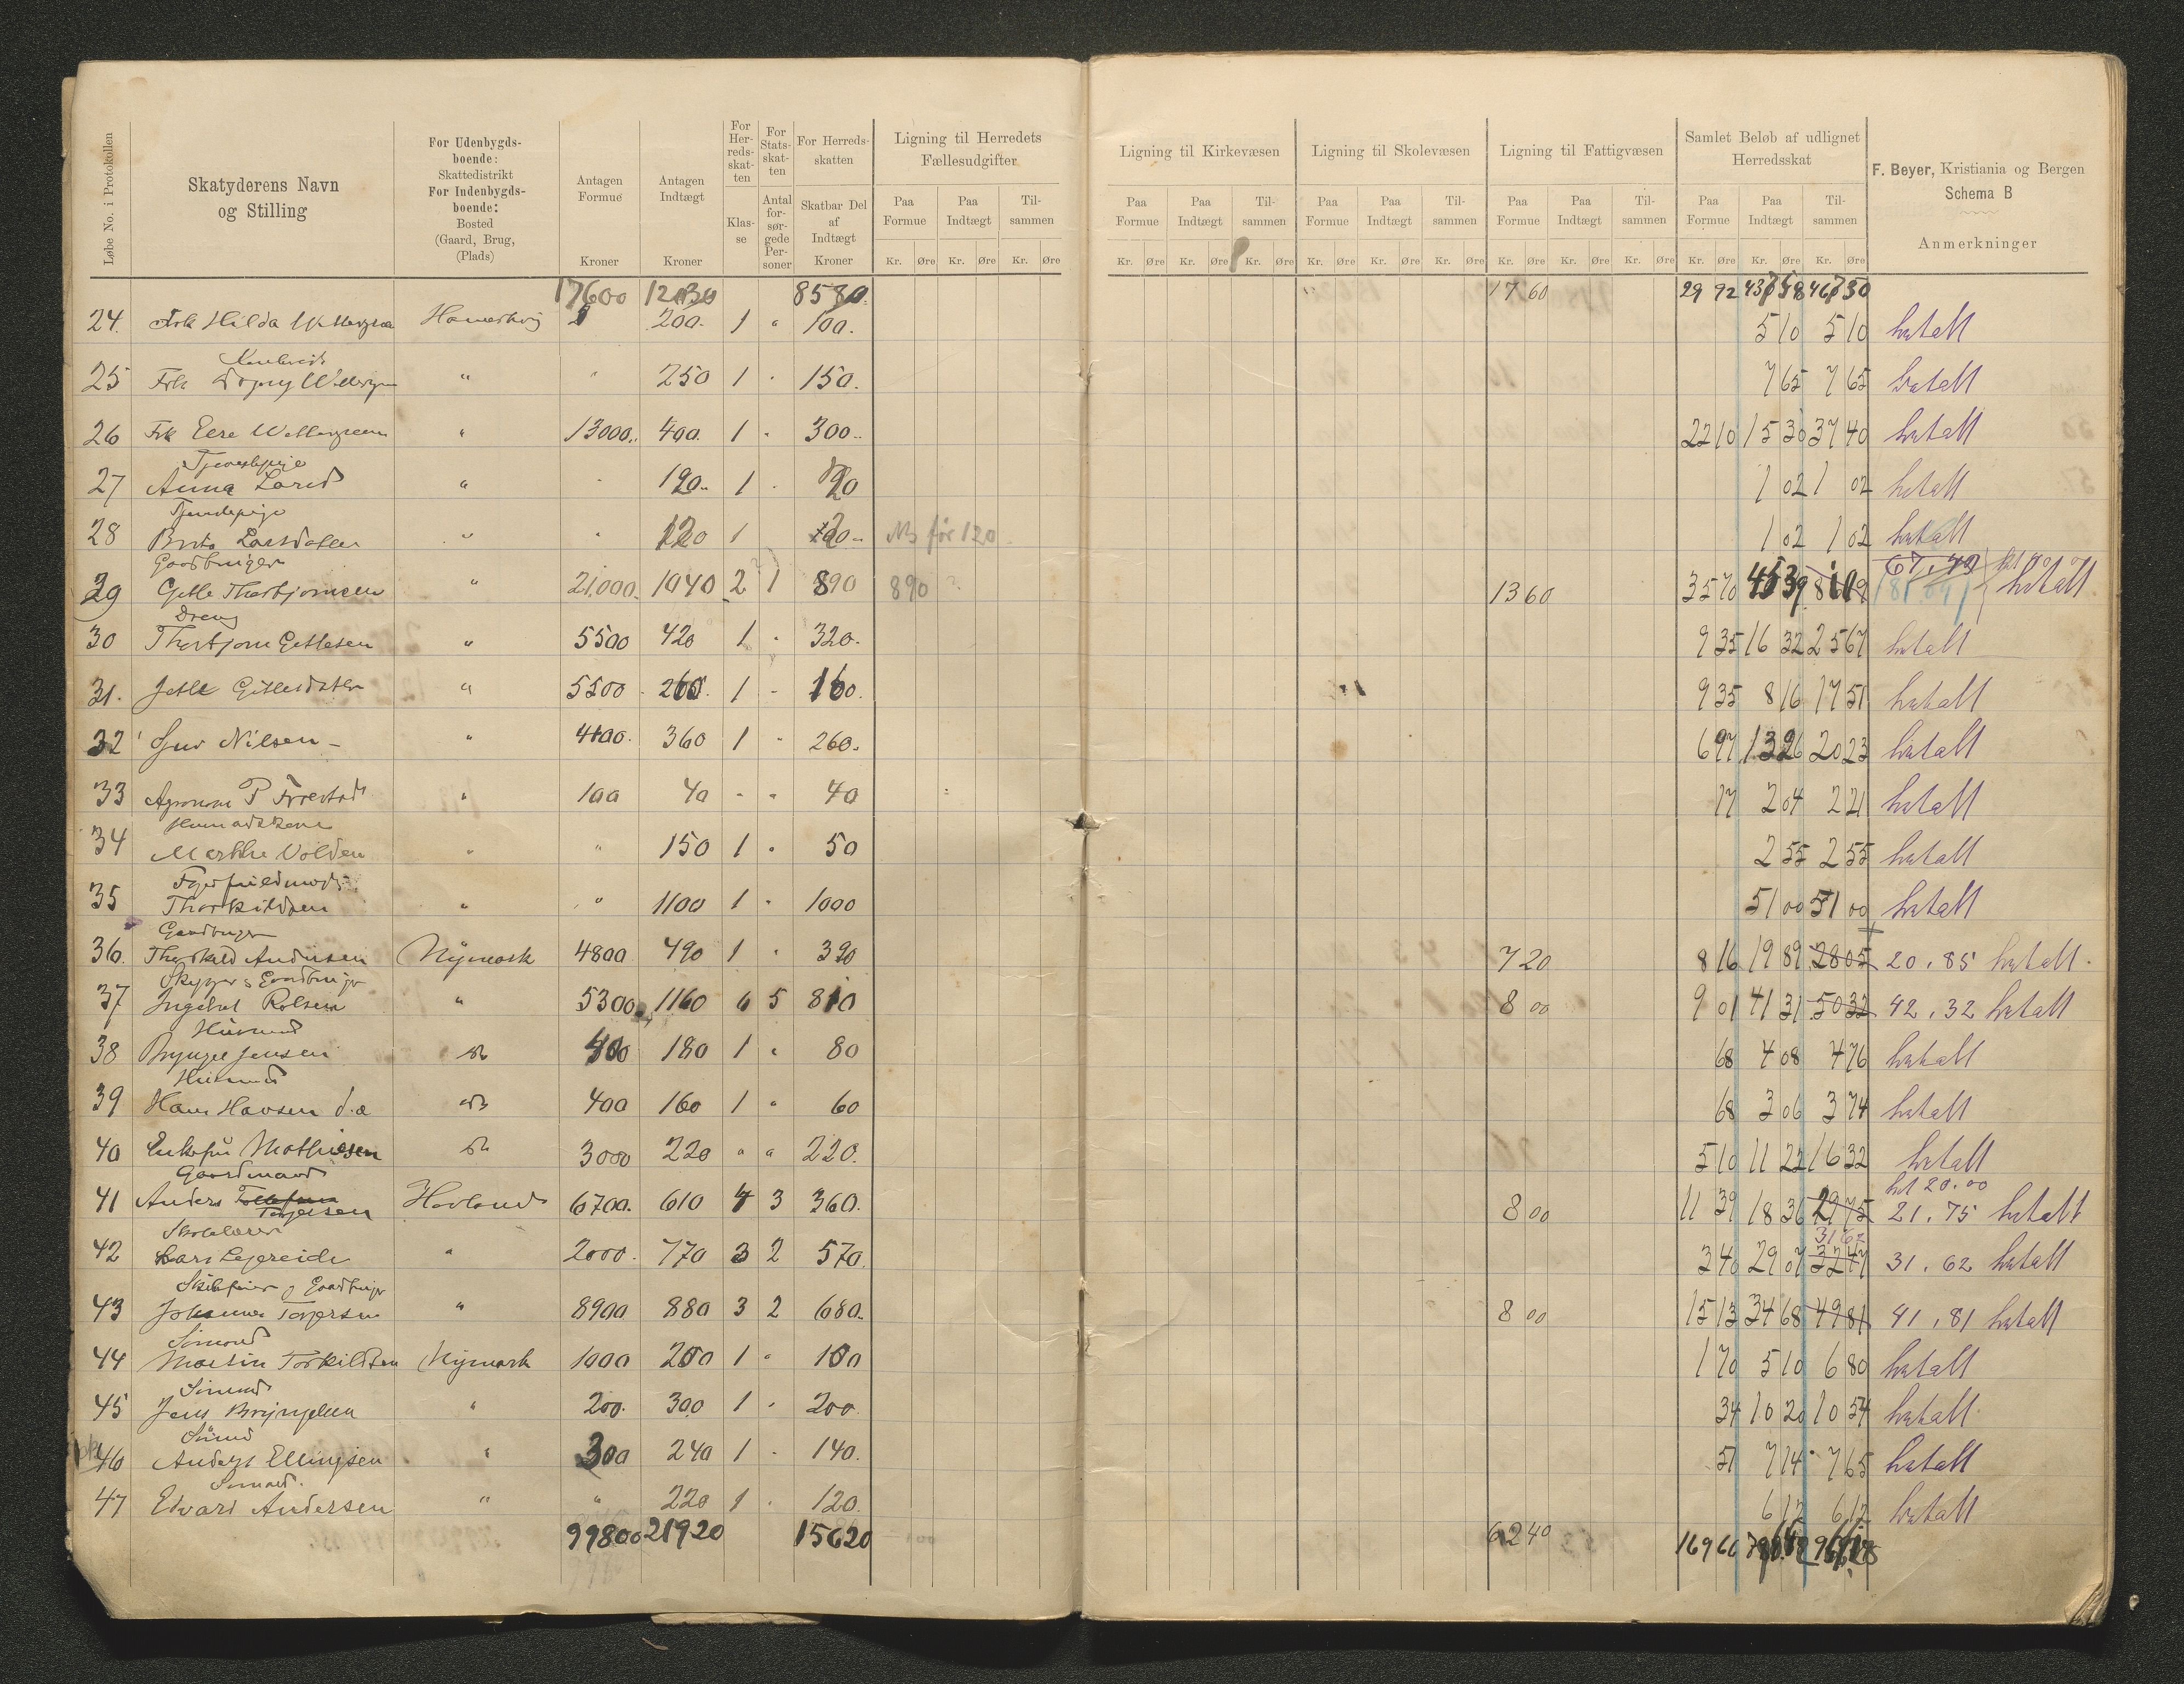 Løbe No. i Protokollen
Skatyderens Navn og Stilling
For Udenbygds-boende: Skattedistrikt For Indenbygds-boende: Bosted (Gaard, Brug, (Plads)
Antagen Formue Kroner
Antagen Indtægt Kroner
For Her-reds-skat-ten Klas-se
For Stats-skat-ten Antal for-sør-gede Per-soner
For Herreds-skatten Skatbar Del af Indtægt Kroner
Ligning til Herredets Fællesudgifter
Paa Formue Paa Indtægt Til-sammen
Kr. Øre Kr. Øre Kr. Øre
Ligning til Kirkevæsen
Paa Formue Paa Indtægt Til-sammen
Kr. Øre Kr. Øre Kr. Øre
Ligning til Skolevæsen
Paa Formue Paa Indtægt Til-sammen
Kr. Øre Kr. Øre Kr. Øre
Ligning til Fattigvæsen
Paa Formue Paa Indtægt Til-sammen
Kr. Øre Kr. Øre Kr. Øre
Samlet Beløb af udlignet Herredsskat
Paa Formue Paa Indtægt Til-sammen
Kr. Øre Kr. Øre Kr. Øre
F. Beyer, Kristiania og Bergen
Schema B
Anmerkninger
17600 8580 17 60 29 92
24. Frk Hilda 200. 1 " 100. 5 10 5 10 betalt
25 Frk Dagny " " 250 1 " 150. 7 65 7 65 betalt
26 Frk " 13000. 400. 1 " 300. 22 10 15 30 37 40 betalt
Tjenestepige
27 Anna " " 120. 1 " 20 1 02 1 02 betalt
28 Brita Larsdatter " " 120 1 20 NB før 120 1 02 1 02 betalt
Gaardbruger
29 Gitle Thorbjornsen " 21,000. 1040 2 1 890 890 ? 13 60 35 70 45 39 betalt
Dreng
30 Thorbjorn Gitlesen " 5500 420 1 " 320. 9 35 16 32 25 67 betalt
31. Gitlesdatter " 5500 260. 1 " 160. 9 35 8 16 17 51 betalt
32 Nilsen " 4100. 360 1 " 260. 6 97 13 26 20 23 betalt
33 Agronom P " 100 40 " " 40 17 2 04 2 21 betalt
34 Marthe Volden " " 150 1 " 50 2 55 2 55 betalt
35 Thorkildsen " " 1100 1 " 1000 51 00 51 00 betalt
Gaardbruger
36. Thorkild Andersen Nymark 4800 490 1 " 390 7 20 8 16 19 89 28 05 20.85 betalt.
Skypper & Gardbruger
37 Ingebret Rolsen " 5300 1160 6 5 810 8 00 9 01 41 31 50 32 42.32 betalt
Husmand
38 Brynjel Jensen do 400 180 1 " 80 68 4 08 4 76 betalt
Husmand
39 Hans Hansen d.æ do 400 160 1 " 60 68 3 06 3 74 betalt
40 Enkefru Mathiesen do 3000 220 " " 220. 5 10 11 22 16 32 betalt
Gaardmand
41 Anders Tollefsen Torjersen Hovland 6700. 610 4 3 360. 8 00 11 39 18 36 29 75 bet 20.00 21.75 betalt
Skolelærer
42 Lars Lejereide " 2000. 770 3 2 570. 3 40 29 07 32 47 31 62 31.62 betalt
43 Johannes Torjersen " 8900 880 3 2 680. 8 00 15 13 34 68 49 81 41.81 betalt
Sømand
44 Martin Torkildsen Nymark 1000 200 1 " 100 1 70 5 10 6 80 betalt
Sømand
45 Jens Bryngelsen " 200. 300 1 " 200 34 10 20 10 54 betalt
Sømand
46 Anders Ellingsen " 300 240 1 " 140. 51 7 14 7 65 betalt
Sømand.
47 Edvard Andersen " " 220 1 " 120. 6 12 6 12 betalt
99800 21920 15620 62 40 169 66